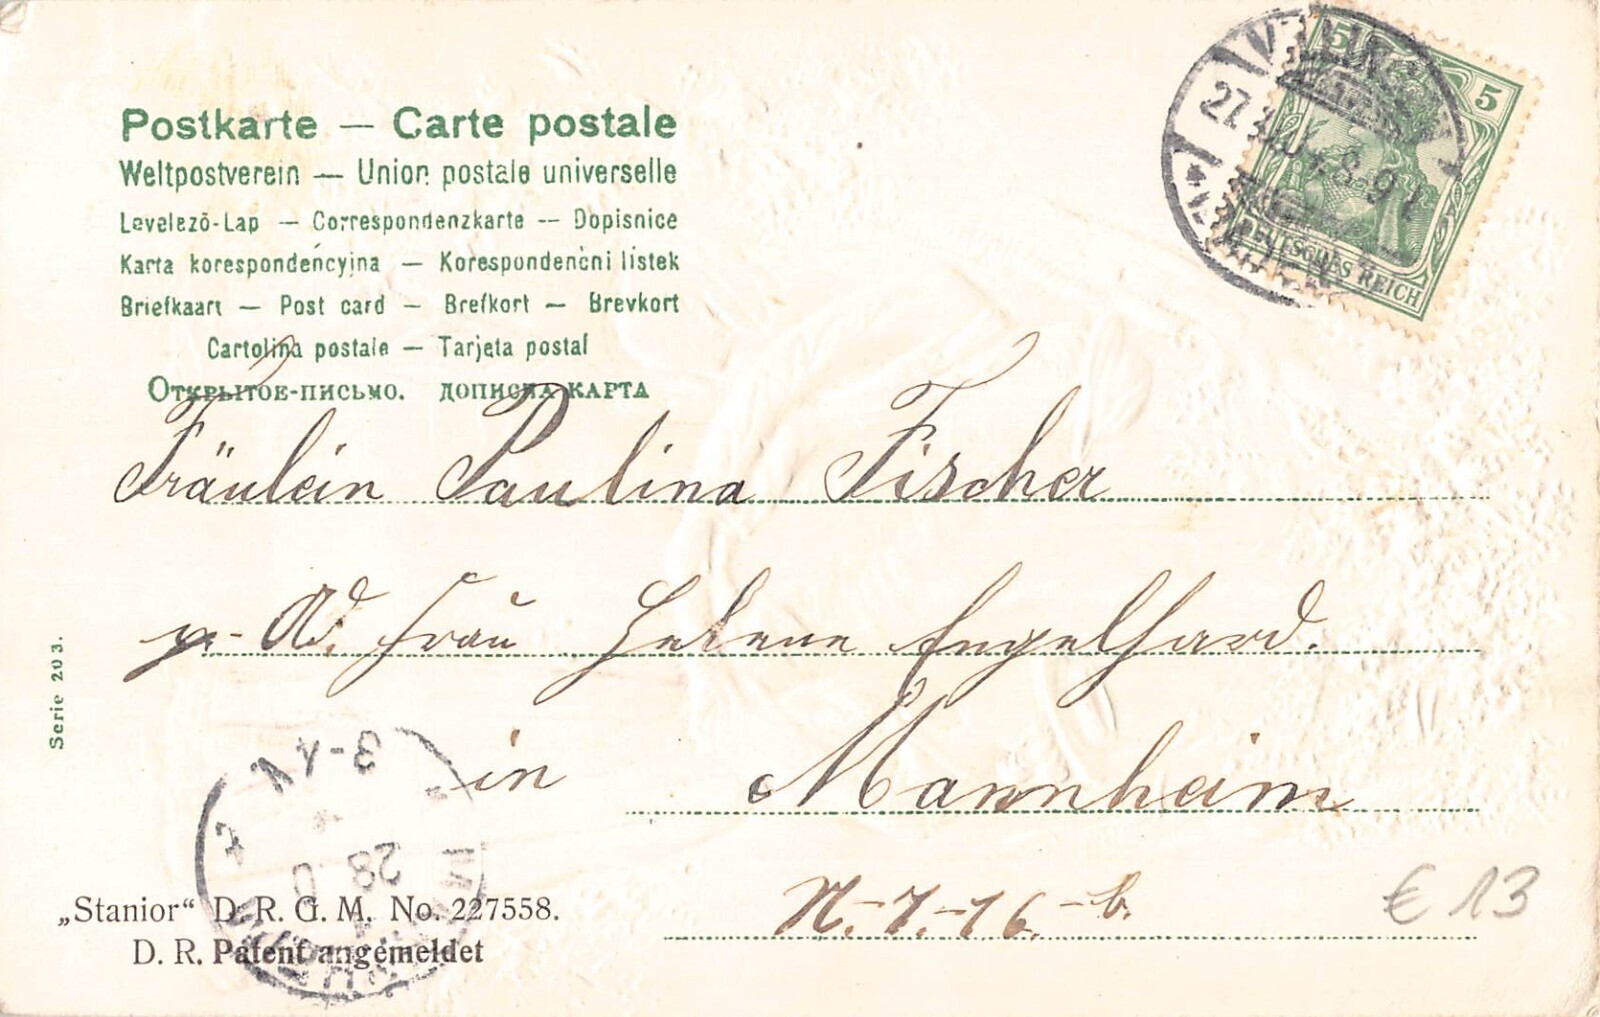 Postkarte — Carte postale
Weltpostverein — Union postale universelle
Levelező-Lap — Correspondenzkarte -- Dopisnice
Karta korespondencyjna — Korespondenčni listek
Briefkaart — Post card — Brefkort — Brevkort
Cartolina postale — Tarjeta postal
Открытое-письмо. дописна карта
5 5
DEUTSCHES REICH
27. 04. 8-9
Fräulein Paulina Fischer
p. Ad. Frau Helene Engelhard.
in Mannheim
N.-7.-16.-b.
€ 13
Serie 203.
3-4 N
28
„Stanior“ D. R. G. M. No. 227558.
D. R. Patent angemeldet